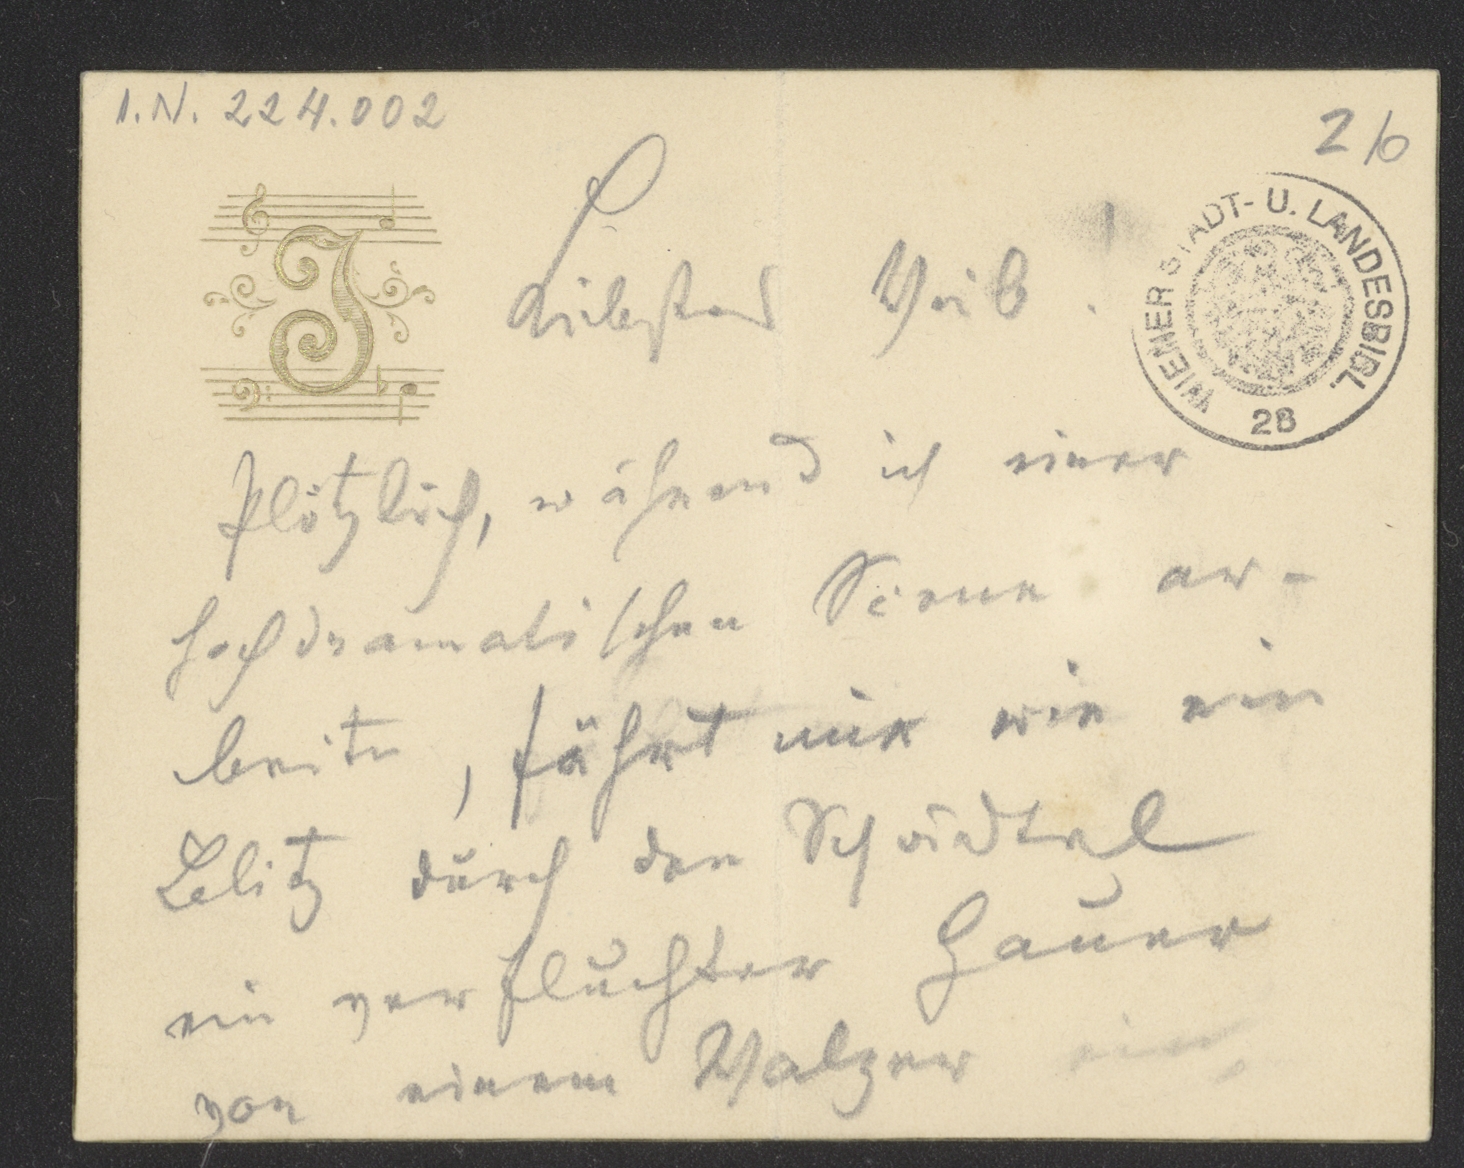 I.N. 224.002
2/6
J
WIENER STADT- U. LANDESBIBL.
28
Liebstes Weib!
Plötzlich, während ich einer
hochdramatischen Scene ar-
beite, fährt mir wie ein
Blitz durch den Schädel
ein verfluchter Gauner
von einem Walzer ein,